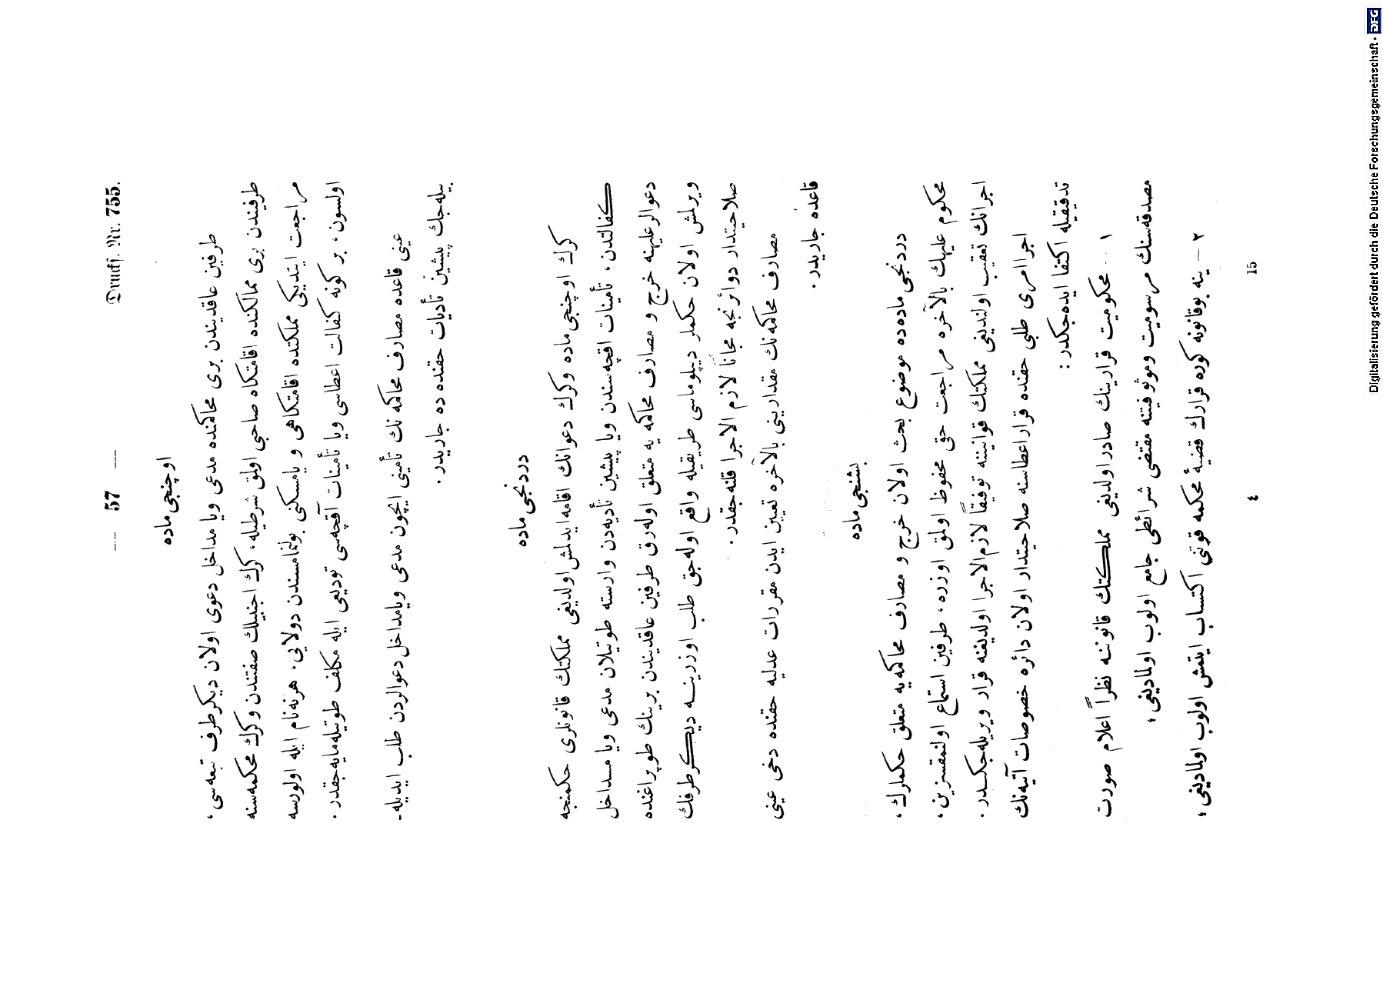 — 57 —
Druckf. Nr. 755.
اوچنجی ماده
طرفین عاقدیندن بری محاکمنده مدعی ویا مداخل دعوی اولان دیکر طرف تبعه‌سی،
طرفیندن بری ممالکنده اقامتکاه صاحبی اولمق شرطیله، کرك اجنبیلك صفتندن و کرك محکمه‌سنه
مراجعت ایتدیکی مملکتده اقامتکاهی و یا مسکنی بولنمامسندن دولایی، هر نه نام ایله اولورسه
اولسون، بر کونه کفالت اعطاسی ویا تأمینات آقچه‌سی تودیعی ایله مکلف طوتیله‌مایه‌جقدر.
عینی قاعده مصارف محاکمه نك تأمینی ایچون مدعی ویا مداخل دعوالردن طلب ایدیله‌
بیله‌جك پیشین تأدیات حقنده ده جاریدر.
دردنجی ماده
کرك اوچنجی ماده و کرك دعوانك اقامه ایدلمش اولدیغی مملکتك قانونلری حکمنجه
کفالتدن، تأمینات اقچه‌سندن ویا پیشین تأدیه‌دن وارسته طوتیلان مدعی ویا مداخل
دعوالر علیهنه خرج و مصارف محاکمه یه متعلق اوله‌رق طرفین عاقدیندن برینك طوپراغنده
ویرلمش اولان حکملر دیپلوماسی طریقیله واقع اوله‌جق طلب اوزرینه دیکر طرفك
صلاحیتدار دوائرنجه مجاناً لازم الاجرا قلنه‌جقدر.
مصارف محاکمه‌نك مقدارینی بالآخره تعیین ایدن مقررات عدلیه حقنده دخی عینی
قاعده جاریدر.
بشنجی ماده
دردنجی ماده‌ده موضوع بحث اولان خرج و مصارف محاکمه‌یه متعلق حکملرك،
محکوم علیهك بالآخره مراجعت حقی محفوظ اولمق اوزره، طرفین استماع اولنمقسزین،
اجرانك تعقیب اولندیغی مملکتك قوانیننه توفیقاً لازم الاجرا اولدیغنه قرار ویریله‌جکدر.
اجرا امری طلبی حقنده قرار اعطاسنه صلاحیتدار اولان دائره خصوصات آتیه‌نك
تدقیقیله اکتفا ایده‌جکدر:
١ — محکومیت قرارینك صادر اولدیغی مملکتك قانوننه نظراً اعلام صورت
مصدقه‌سنك مرسومیت وموثوقیتنه مقتضی شرائطی جامع اولوب اولمادیغی؛
٢ — ینه بوقانونه کوره قرارك قضیهٔ محکمه قوتنی اکتساب ایتمش اولوب اولمادیغی؛
٤
15
Digitalisierung gefördert durch die Deutsche Forschungsgemeinschaft - DFG